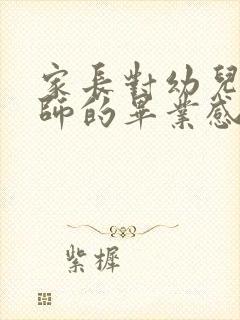 家長對幼兒
師的畢業感
紫樨